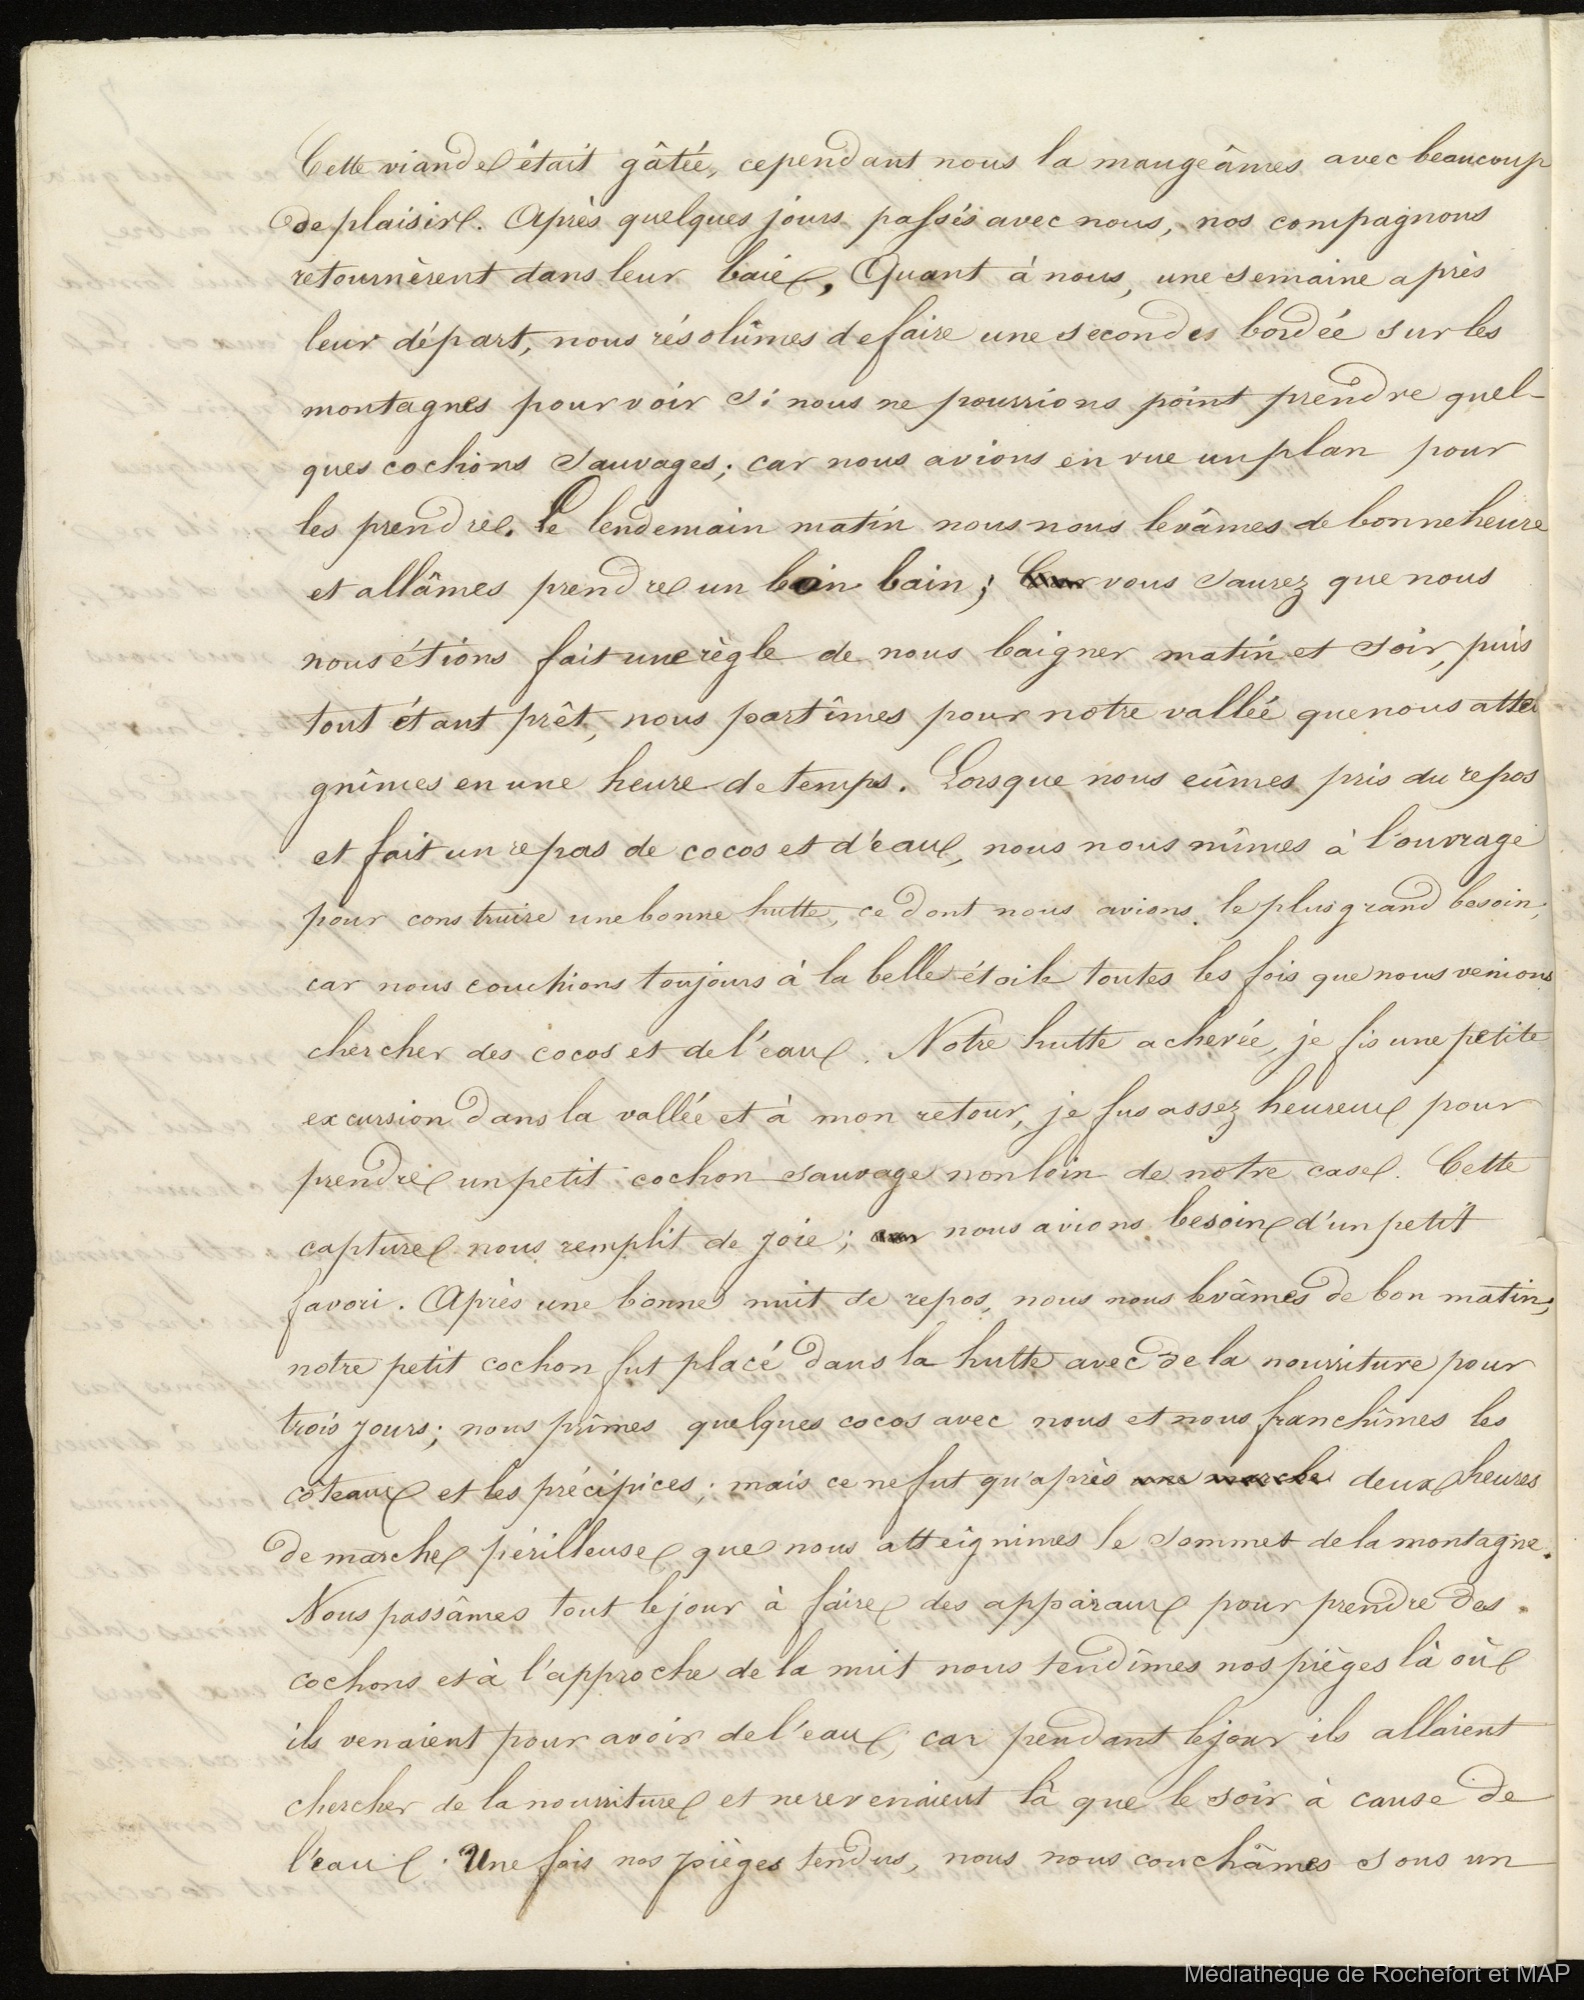 Cette viande était gâtée, cependant nous la mangeâmes avec beaucoup
de plaisir. Après quelques jours passés avec nous, nos compagnons
retournèrent dans leur baie, Quant à nous, une semaine après
leur départ, nous résolûmes de faire une seconde bordée sur les
montagnes pour voir si nous ne pourrions point prendre quel-
ques cochons sauvages; car nous avions en vue un plan pour
les prendre. Le lendemain matin nous nous levâmes de bonne heure
et allâmes prendre un bain bain; Car vous saurez que nous
nous étions fait une règle de nous baigner matin et soir, puis
tout étant prêt, nous partîmes pour notre vallée que nous attei
gnîmes en une heure de temps. Lorsque nous eûmes pris du repos
et fait un repas de cocos et d'eau, nous nous mîmes à l'ouvrage
pour construire une bonne hutte, ce dont nous avions le plus grand besoin,
car nous couchions toujours à la belle étoile toutes les fois que nous venions
chercher des cocos et de l'eau. Notre hutte achevée, je fis une petite
excursion dans la vallée et à mon retour, je fus assez heureux pour
prendre un petit cochon sauvage non loin de notre case. Cette
capture nous remplit de joie; car nous avions besoin d'un petit
favori. Après une bonne nuit de repos, nous nous levâmes de bon matin;
notre petit cochon fut placé dans la hutte avec de la nourriture pour
trois jours; nous prîmes quelques cocos avec nous et nous franchîmes les
côteaux et les précipices; mais ce ne fut qu'après une marche deux heures
de marche périlleuse que nous atteignîmes le sommet de la montagne.
Nous passâmes tout le jour à faire des apparaux pour prendre des
cochons et à l'approche de la nuit nous tendîmes nos pièges là où
ils venaient pour avoir de l'eau, car pendant le jour ils allaient
chercher de la nourriture et ne revenaient là que le soir à cause de
l'eau. Une fois nos pièges tendus, nous nous couchâmes sous un
Médiathèque de Rochefort et MAP